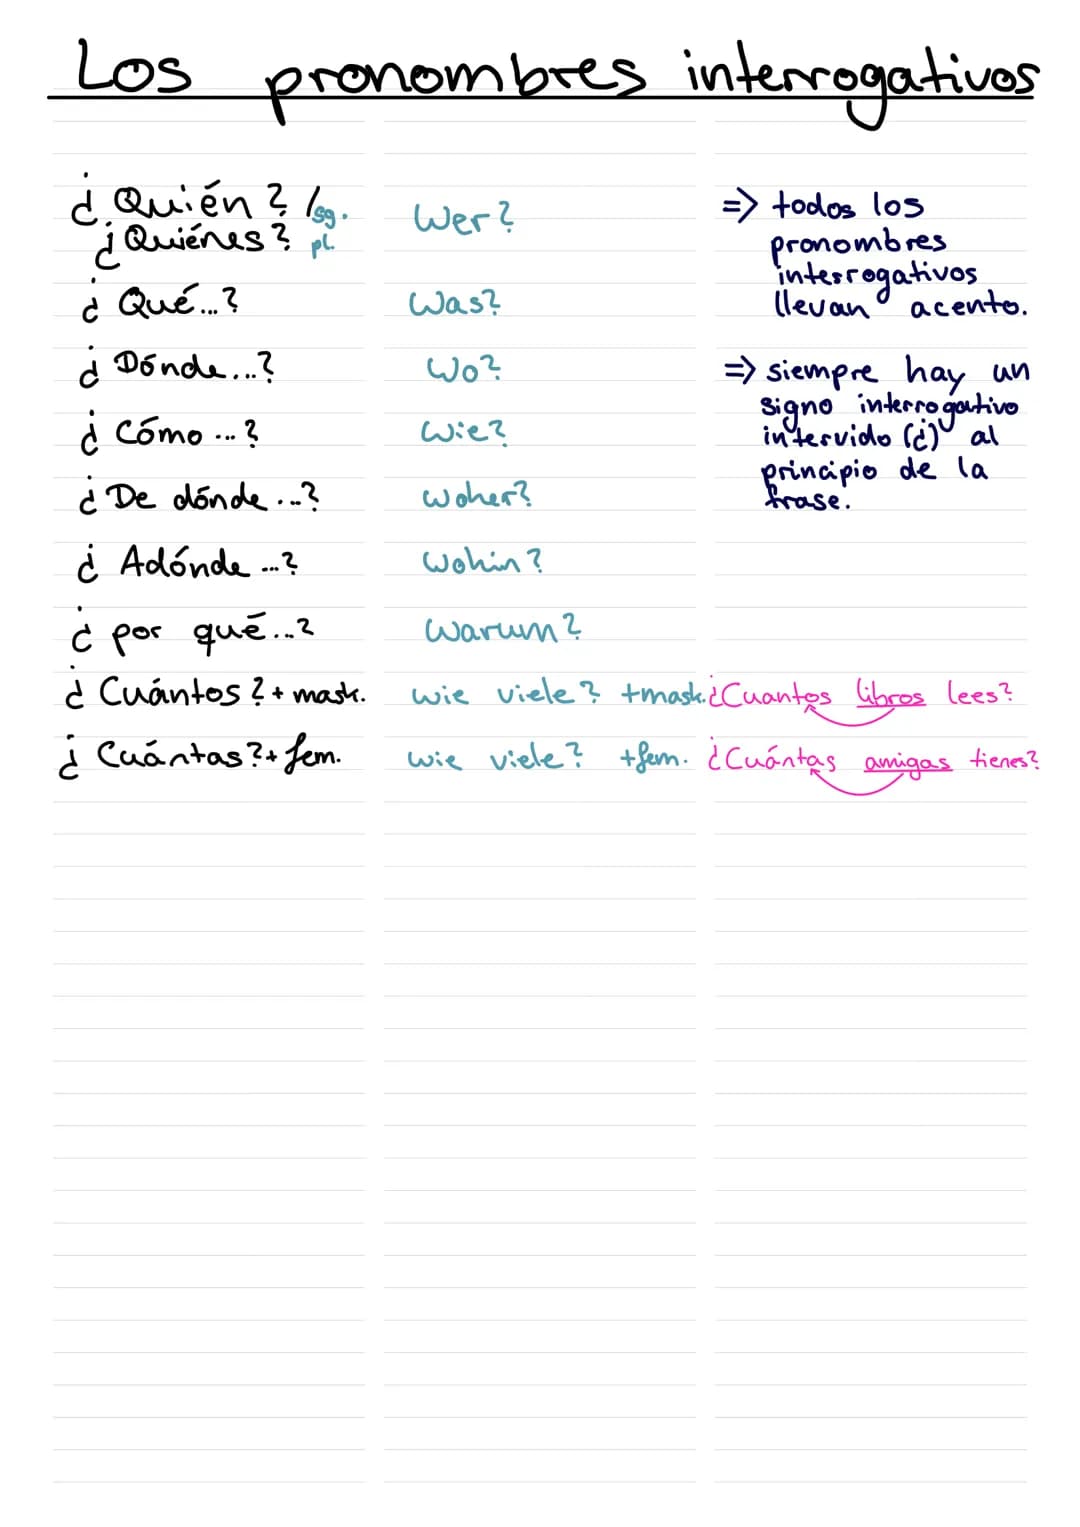 Los pronombres interrogativos
¿Quién? / sg.
¿Quiénes? pl.
Wer?
¿Qué...?
Was?
¿Dónde...?
Wo?
¿Cómo...?
Wie?
¿De dónde...?
Woher?
¿Adónde...?
Wohin?
¿por qué...?
Warum?
¿Cuántos? + mask.
wie viele? + mask.
¿Cuantos libros lees?
¿Cuántas? + fem.
wie viele? + fem.
¿Cuántas amigas tienes?
=> todos los
pronombres
interrogativos
llevan acento.
=> siempre hay un
signo interrogativo
intervido (¿) al
principio de la
frase.